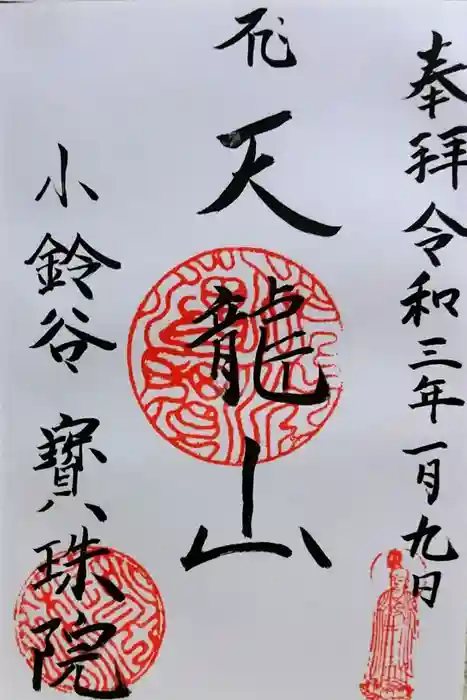 奉拝令和三年一月九日
天龍山
小鈴谷 寳珠院